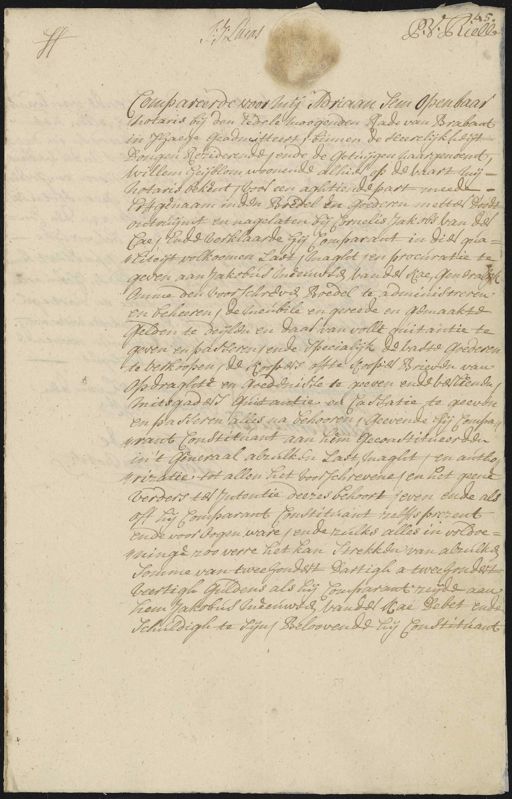 45.
Compareerde voor mij Adriaan Sem openbaar
notaris bij den Edele moogenden Rade van Brabant
in 's Haege geadmitteert, binnen de Heerelijkheijt
Dongen Resideerende, ende de getuijgen naargenoemt,
Willem wonende alhier op de vaart mij
notaris bekent, voor een agtste depart meede
Erfgenaam inden Boedel en goederen metter doodt
ontruijmt en nagelaten bij Cornelis Jakobs van der
Kae, Ende verklaarde hij Comparant in dier qua=
liteijt volkoomen Last, maght en procuratie te
geven aan Jakobus Meeuwesse van der Kae,
omme den voorschreve Boedel te administreren
en beheeren, de meubile en gereede en gemaakte
gelden te deijlen en daar van volle quitantie te
geven en passeren, ende specialijk de vaste goederen
te verkoopen, de Koopers ofte Kooper Brieven van
opdraght en geven ende
mitsgaders quitantie en Cassatie te geeven
en passeren alles na behooren, gevende hij Compa=
rant Constituant aan hem geconstitueerden
in 't generaal absulken Last, maght, en autho=
rizatie, tot allen het voorschrevene, en het geene
verders ter intentie deezes behoort, even ende als
oft hij Comparant Constituant zelfs prezent
ende voor oogen ware, ende zulks alles in voldoe=
ninge zoo verre het kan strekken van absulke
Somme van twee hondert Dartigh a twee hondert
veertigh guldens als hij Comparant zeijde aan
hem Jakobus Meeuwesse van der Kae Debet ende
schuldigh te zijn, Beloovende hij Constituant